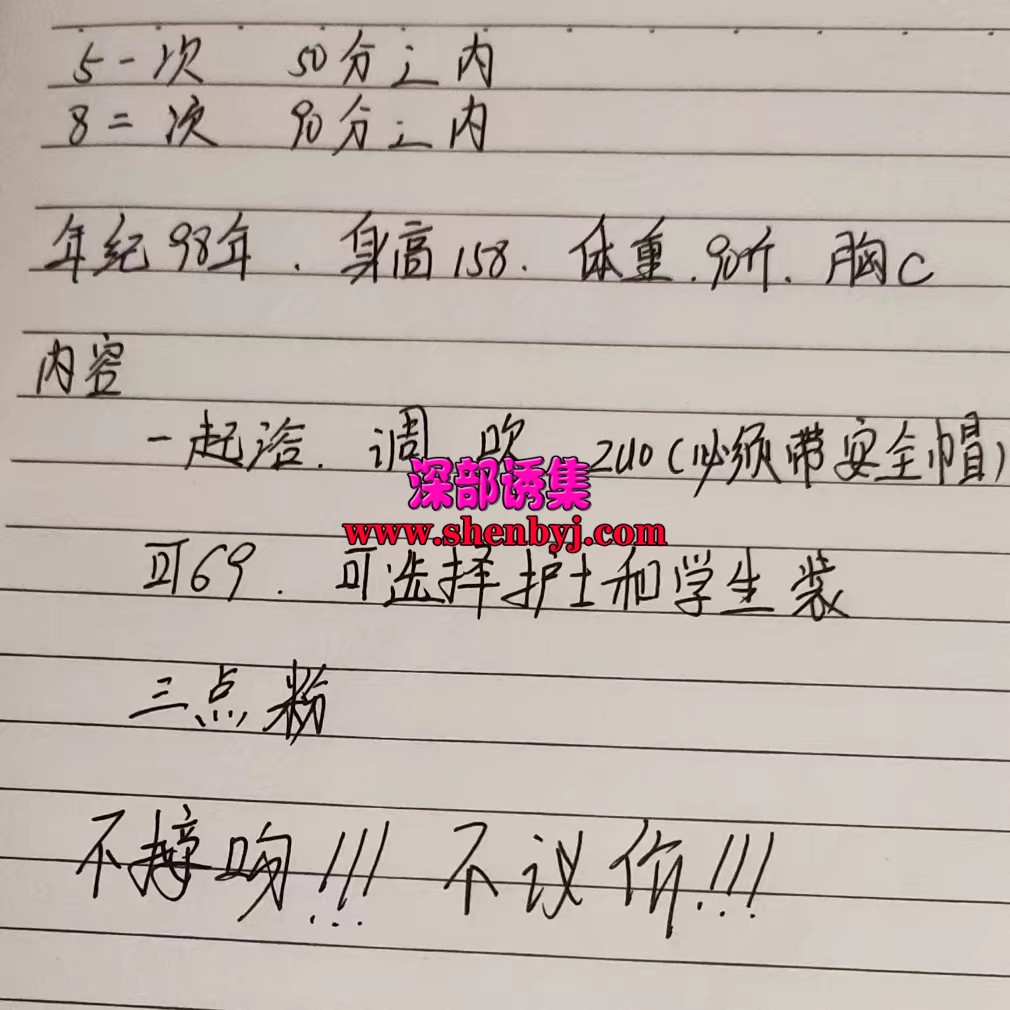 5一次 50分之内
8二次 90分之内
年纪98年. 身高158. 体重.90斤. 胸C
内容
一起洽. 调 吹 zuo(必须带安全帽)
深部诱集
www.shenbyj.com
可69. 可选择护士和学生装
三点粉
不接吻!!! 不议价!!!